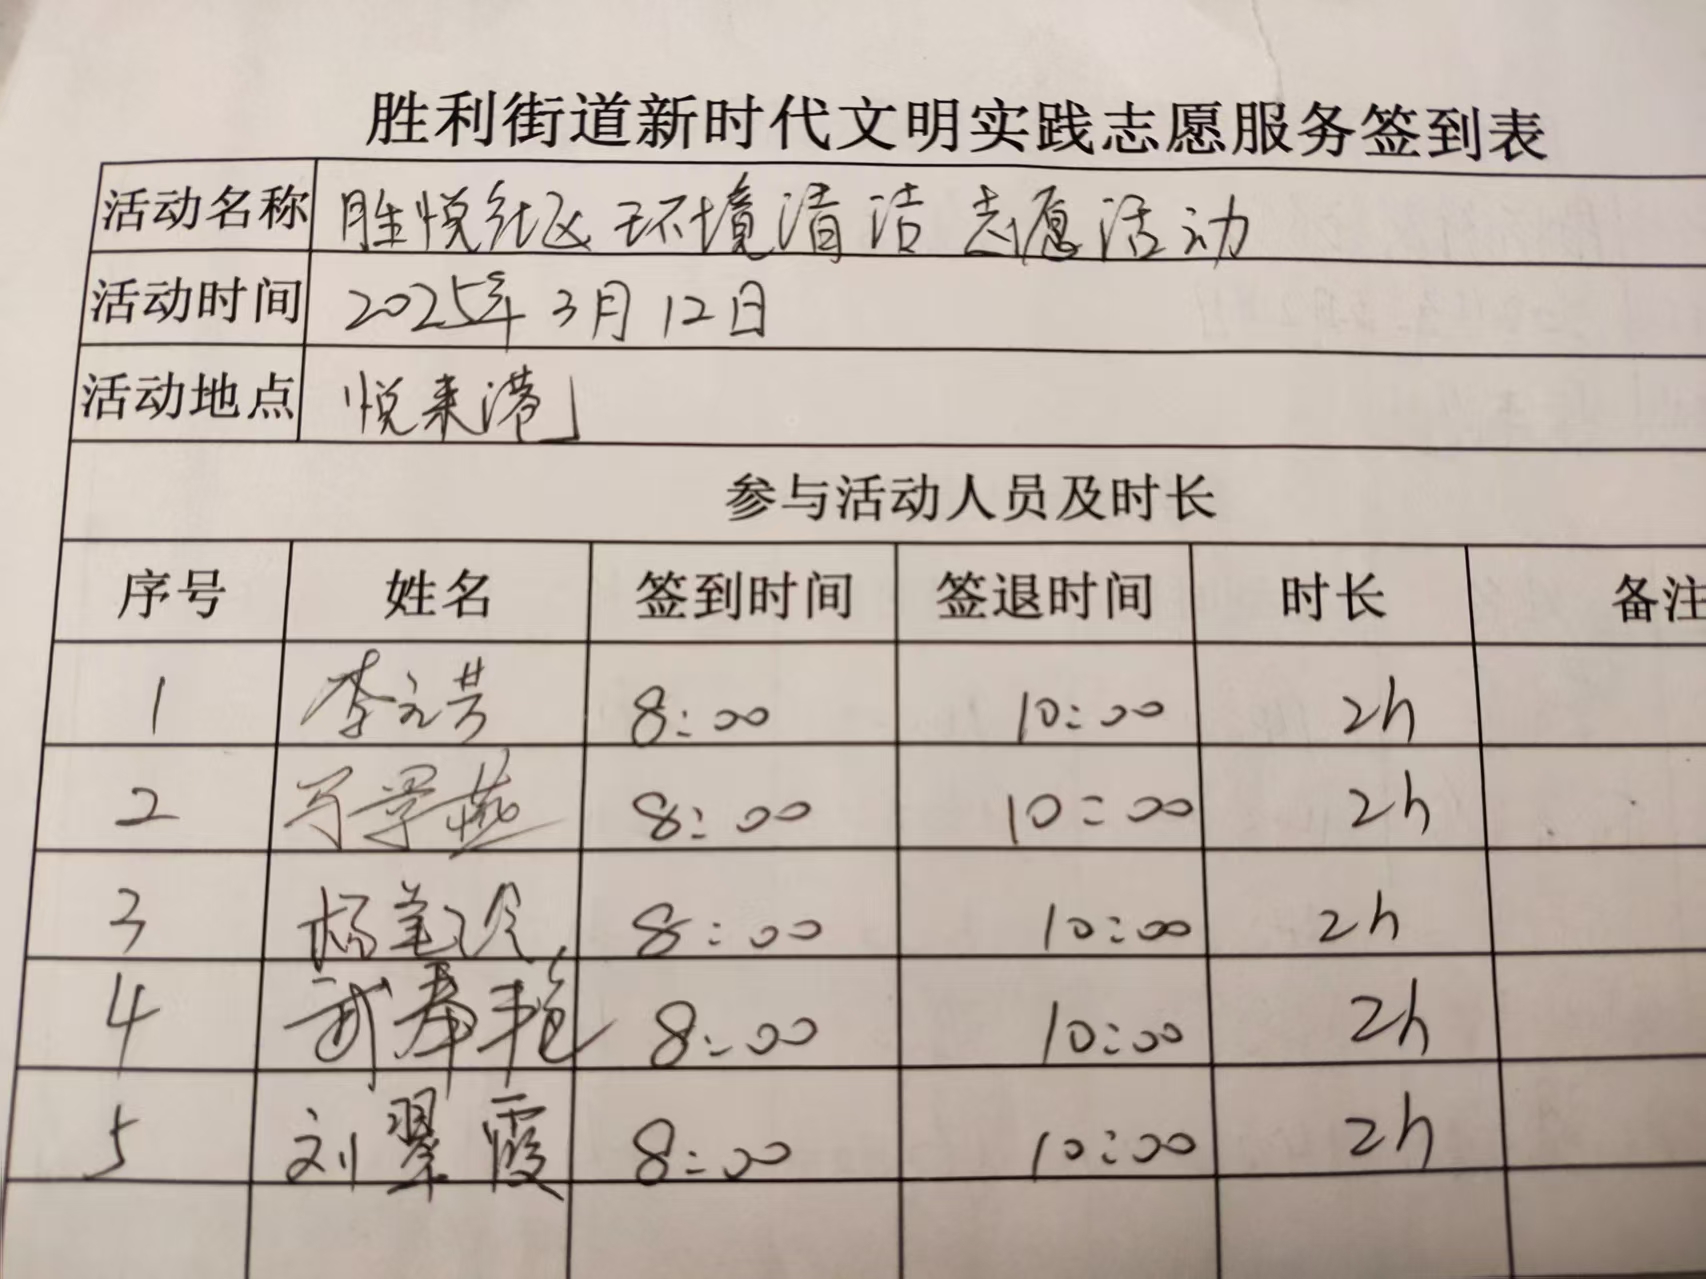 胜利街道新时代文明实践志愿服务签到表
活动名称 胜悦社区环境清洁志愿活动
活动时间 2025年3月12日
活动地点 悦来港
参与活动人员及时长
序号 姓名 签到时间 签退时间 时长 备注
1 李元芳 8:00 10:00 2h
2 马学燕 8:00 10:00 2h
3 杨 8:00 10:00 2h
4 武春艳 8:00 10:00 2h
5 刘翠霞 8:00 10:00 2h